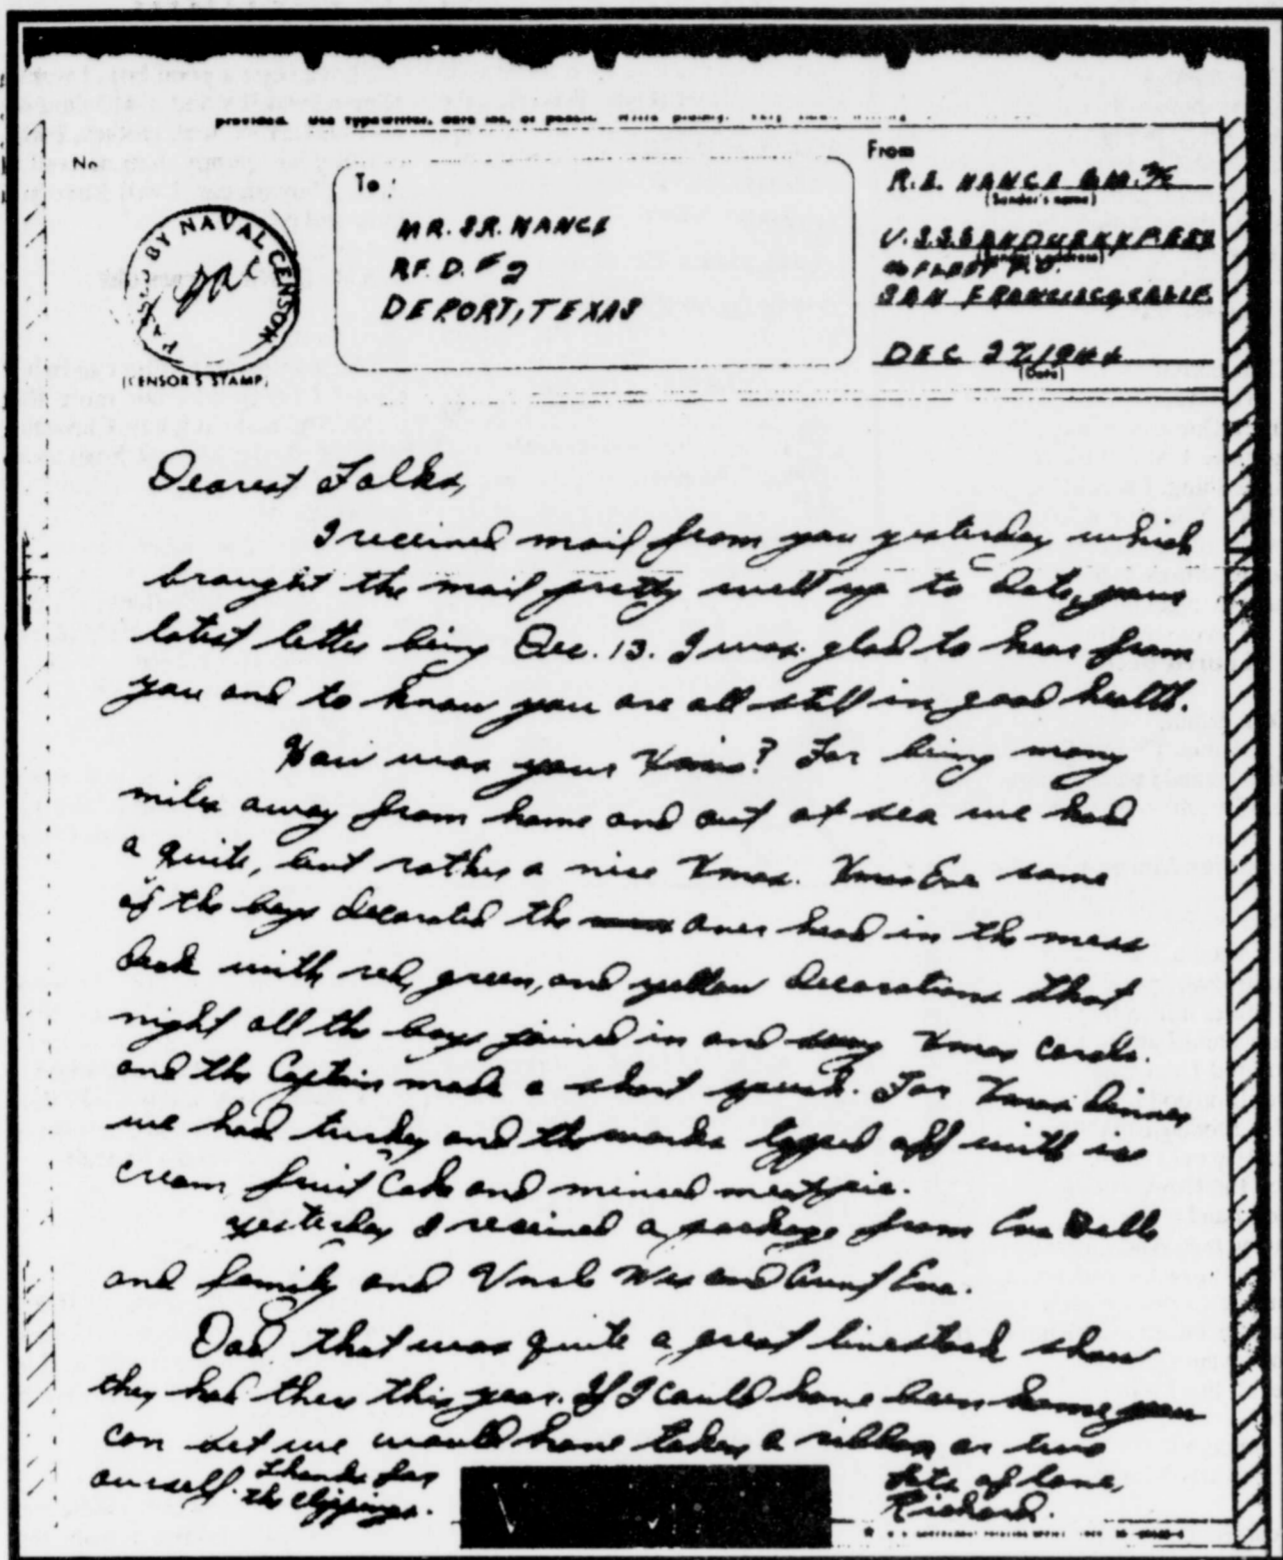 provided. Use typewriter, dark ink, or pencil. Write plainly.
No.
PASSED BY NAVAL CENSOR
(CENSOR'S STAMP)
To:
MR. S.R. NANCE
R.F.D. #2
DEPORT, TEXAS
From
R.E. NANCE
(Sender's name)
U.S.S.
(Sender's address)
% FLEET P.O.
SAN FRANCISCO, CALIF.
DEC 27, 1944
(Date)
Dearest Folks,
I received mail from you yesterday which
brought the mail pretty well up to date, your
latest letter being Dec. 13. I was glad to hear from
you and to know you are all still in good health.
How was your Xmas? For being many
miles away from home and out at sea we had
a quite, but rather a nice Xmas. Xmas Eve some
of the boys decorated the over head in the mess
deck with red, green, and yellow decorations that
night all the boys joined in and sang Xmas carols.
and the Captain made a short speech. For Xmas dinner
we had turkey and the works topped off with ice
cream fruit cake and minced meat pie.
yesterday I received a package from Eva Belle
and family and Uncle Wes and Aunt Eva.
Dad that was quite a great livestock show
they had there this year. If I could have been home you
can bet we would have taken a ribbon or two
ourself. Thanks for
the clippings.
Lots of love,
Richard.